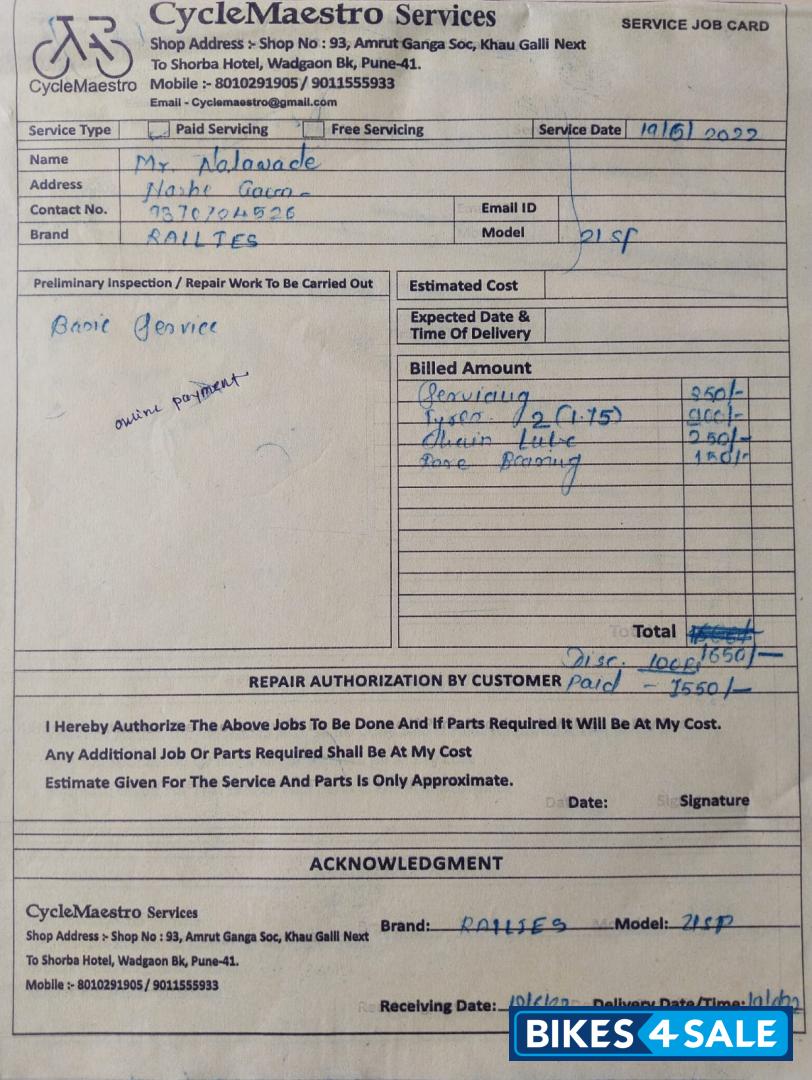 CycleMaestro Services
SERVICE JOB CARD
Shop Address :- Shop No : 93, Amrut Ganga Soc, Khau Galli Next
To Shorba Hotel, Wadgaon Bk, Pune-41.
CycleMaestro
Mobile :- 8010291905 / 9011555933
Email - Cyclemaestro@gmail.com
Service Type Paid Servicing Free Servicing Service Date 2022
Name Mr. Nalawade
Address
Contact No. Email ID
Brand RALLIES Model 21 SP
Preliminary Inspection / Repair Work To Be Carried Out
Estimated Cost
Basic Service
Expected Date &
Time Of Delivery
Billed Amount
online payment
Servicing 350/-
Tyres 2 (1.75) 900/-
Chain Lube 250/-
Bearing 150/-
Total
1650/-
Disc.
REPAIR AUTHORIZATION BY CUSTOMER Paid - 1550/-
I Hereby Authorize The Above Jobs To Be Done And If Parts Required It Will Be At My Cost.
Any Additional Job Or Parts Required Shall Be At My Cost
Estimate Given For The Service And Parts Is Only Approximate.
Date: Signature
ACKNOWLEDGMENT
CycleMaestro Services
Brand: RALLIES Model: 21SP
Shop Address :- Shop No : 93, Amrut Ganga Soc, Khau Galli Next
To Shorba Hotel, Wadgaon Bk, Pune-41.
Mobile :- 8010291905 / 9011555933
Receiving Date: Delivery Date/Time:
BIKES4SALE